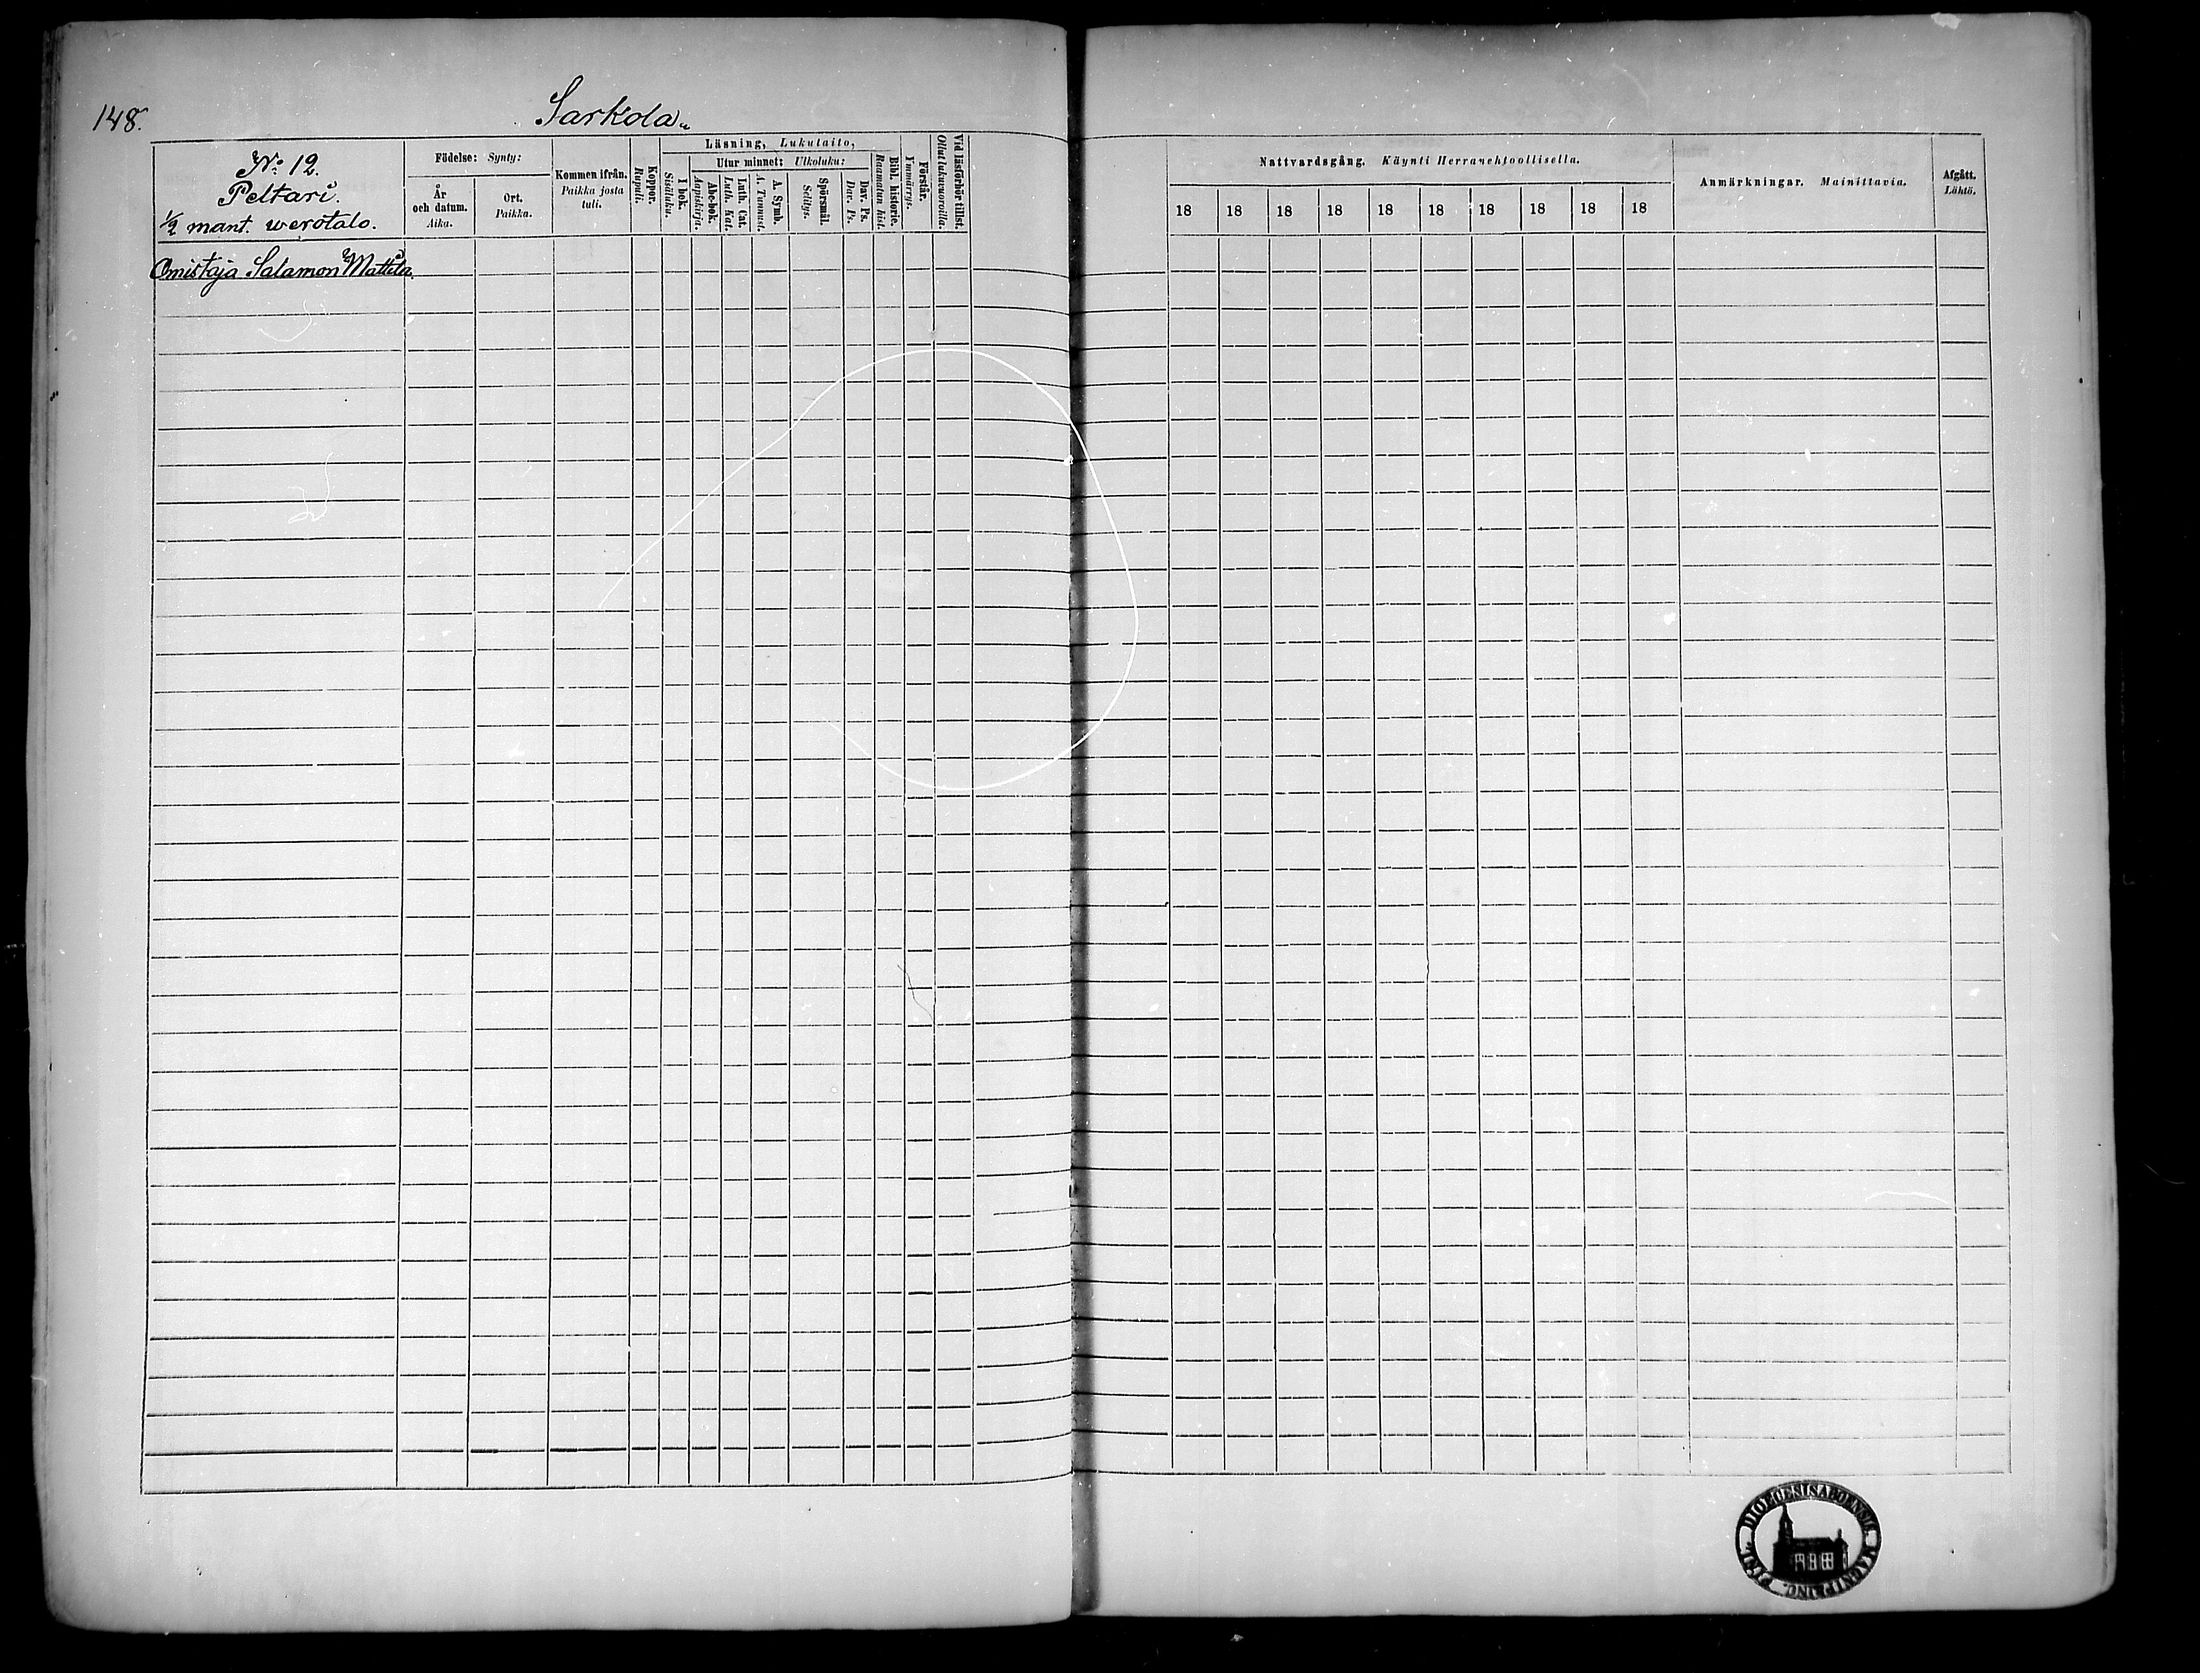 148.
Sarkola
No: 12.
Peltari.
1/2 mant. werotalo.
Födelse: Synty:
År
och datum.
Aika.
Ort.
Paikka.
Kommen ifrån.
Paikka josta
tuli.
Koppor.
Rupuli.
Läsning, Lukutaito,
I bok.
Sisäluku.
Utur minnet: Ulkoluku:
Abc-bok.
Aapiskirja.
Luth. Cat.
Luth. Kat.
A. Symb.
A. Tunnust.
Spörsmål.
Selitys.
Dav. Ps.
Dav. Ps.
Bibl. historie.
Raamatun hist.
Förstår.
Ymmärrys.
Vid läsförhör tillst.
Ollut lukuvuoroilla.
Omistaja Salamon Mattila
Nattvardsgång. Käynti Herranehtoollisella.
18 18 18 18 18 18 18 18 18 18
Anmärkningar. Mainittavia.
Afgått.
Lähtö.
DIOECESIS ABOENSIS MAGNI PRINC. FINL.